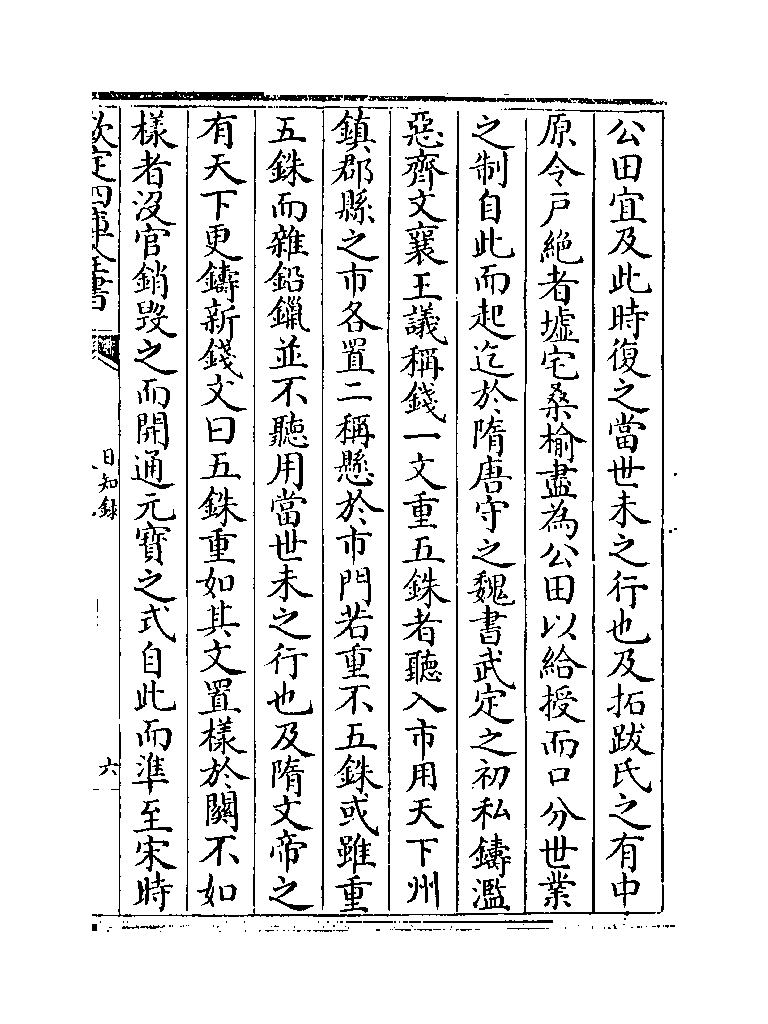 公田宜及此時復之當世未之行也及拓跋氏之有中
原令戸絶者墟宅桑榆盡為公田以給授而口分世業
之制自此而起迄於隋唐守之魏書武定之初私鑄濫
惡齊文襄王議稱錢一文重五銖者聽入市用天下州
鎮郡縣之市各置二稱懸於市門若重不五銖或雖重
五銖而雜鉛鑞並不聽用當世未之行也及隋文帝之
有天下更鑄新錢文曰五銖重如其文置樣於關不如
樣者沒官銷毀之而開通元寳之式自此而準至宋時
欽定四庫全書
日知錄
六